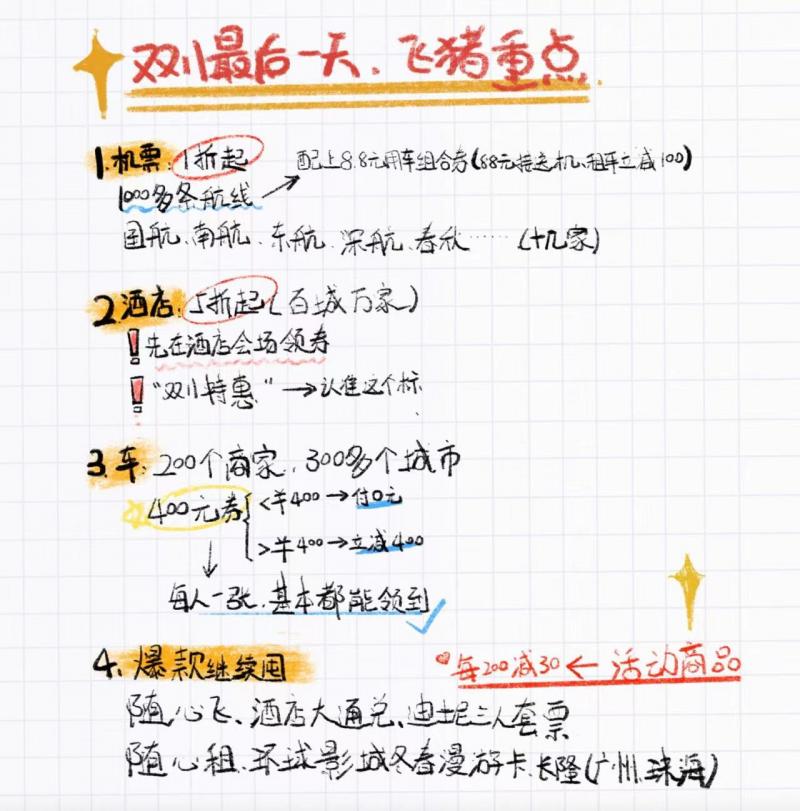 双11最后一天、飞猪重点
1.机票:1折起 配上8.8元用车组合券(88元接送机、租车立减100)
1000多条航线
国航、南航、东航、深航、春秋……(十几家)
2.酒店:5折起(百城万家)
!先在酒店会场领券
!“双11特惠”→认准这个标
3.车:200个商家、300多个城市
400元券{<¥400→付0元
>¥400→立减400
每人一张、基本都能领到
4.爆款继续囤 每200减30←活动商品
随心飞、酒店大通兑、迪士尼三人套票
随心租、环球影城冬春漫游卡、长隆(广州、珠海)